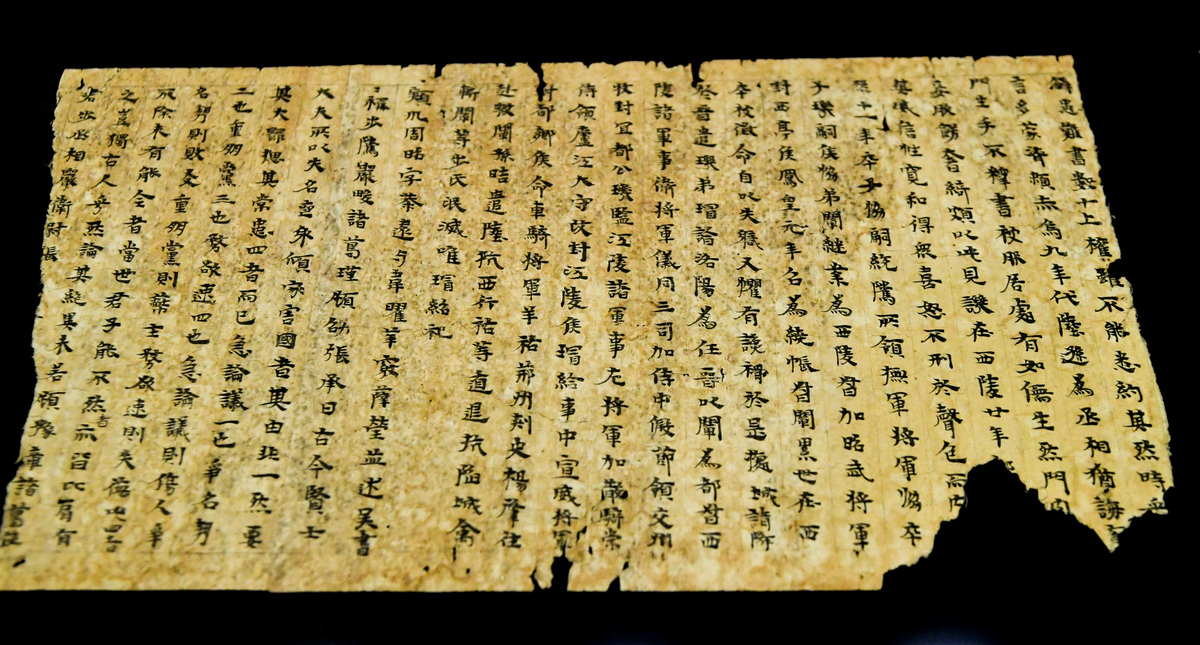 解患難書數十上權雖不能悉約其然時采
言多蒙濟賴赤烏九年代陸遜為丞相猶誨育
門生手不釋書被服居處有如儒生然門內
妻服飾奢綺頗以此見譏在西陵廿年鄰
敬其威信性寬和得衆喜怒不刑於聲色而內
十一年卒子協嗣統騭所領撫軍將軍協卒
子璣嗣侯協弟闡繼業為西陵督加昭武將軍
封西亭侯鳳皇元年名為繞帳督闡累世在西
卒被徵命自以失職又懼有讒禍於是據城請降
於晉遣璣弟璿詣洛陽為任晉以闡為都督西
陵諸軍事衛將軍儀同三司加侍中假節領交州
牧封宜都公璣監江陵諸軍事左將軍加散騎常
侍領廬江大守改封江陵侯璿給事中宣威將軍
封都鄉侯命車騎將軍羊祜荊州刺史楊肇往
赴救闡孫晧遣陸抗西行祜等遁退抗陷城禽
斬闡等步氏泯滅唯璿紹祀
潁川周昭字恭遠与韋曜華覈薛瑩並述吳書
稱步騭嚴畯諸葛瑾顧劭張承曰古今賢士
大夫所以失名喪身傾家害國者其由非一然要
其大歸總其常患四者而已急論議一也爭名勢
二也重朋黨三也務欲速四也急論議則傷人爭
名勢則敗友重朋黨則蔽主務欲速則失德此四者
不除未有能全者當世君子能不然者亦皆比肩有
之豈獨古人乎然論其絕異未若顧豫章諸葛
步丞相嚴衛尉張